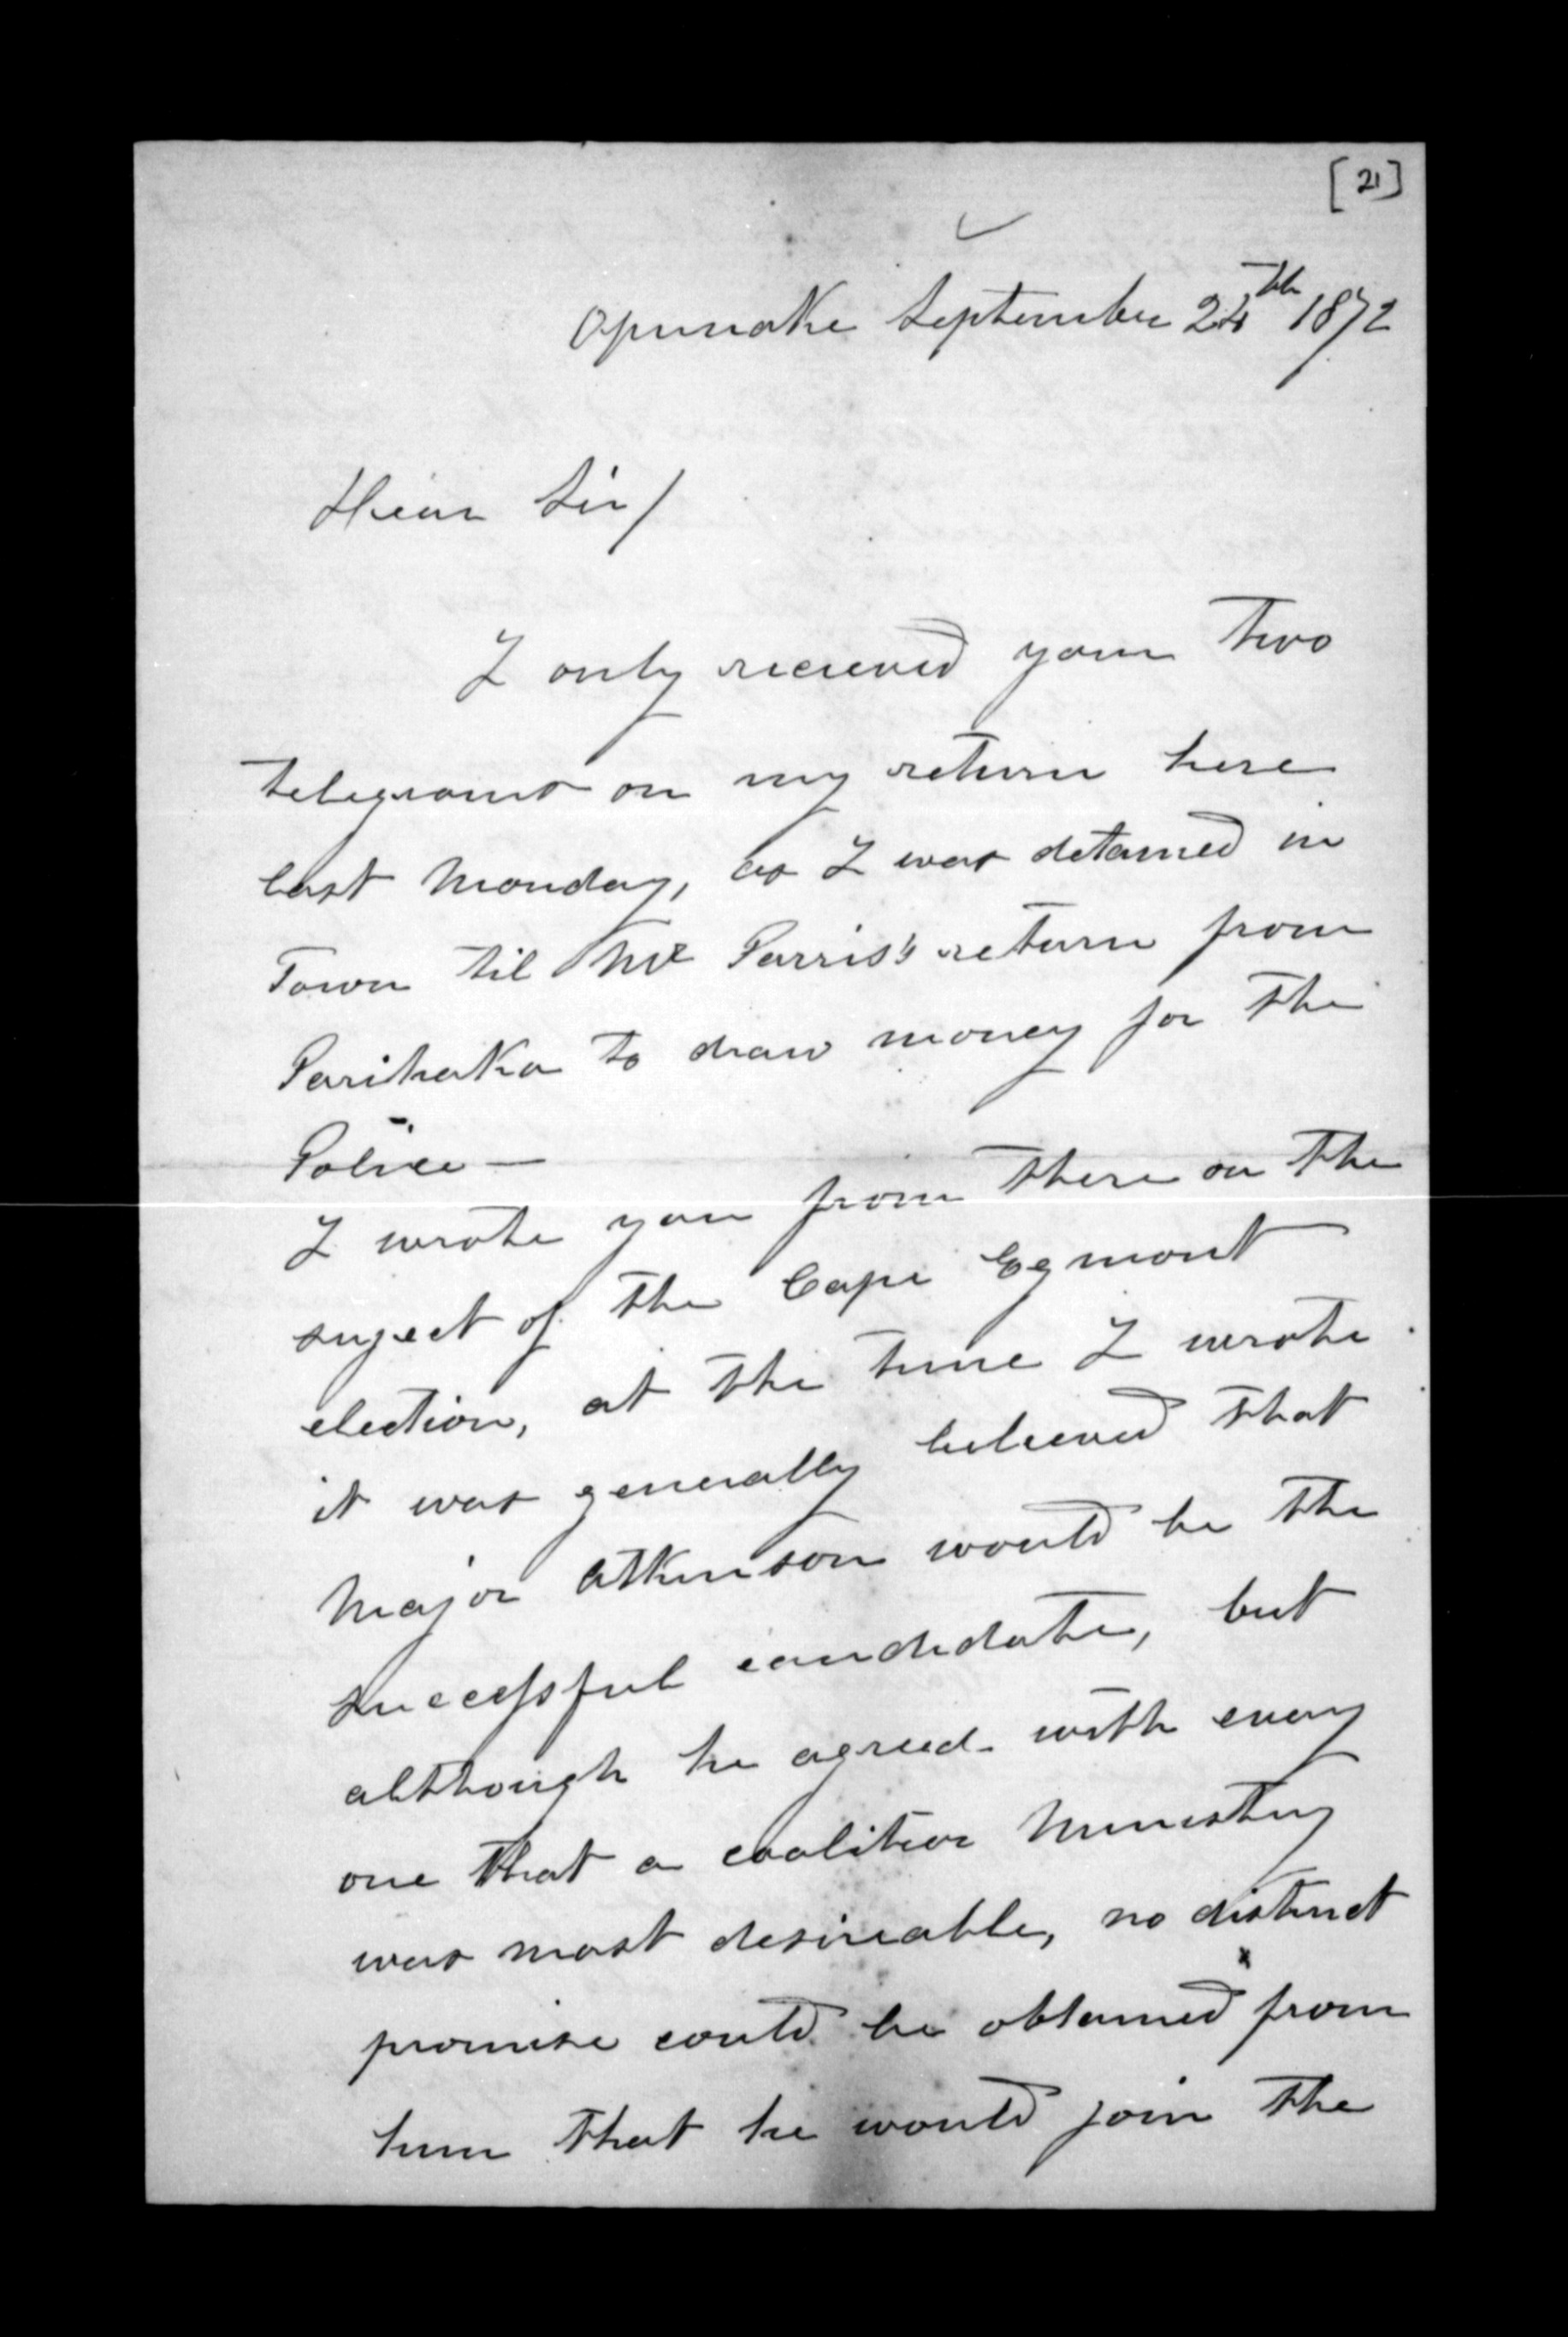 [21]
Opunake September 24th 1872
Dear Sir/
I only recieved your two
telegrams on my return here
last Monday, as I was detained in
Town til Mr Parris's return from
Parihaka to draw money for the
Police —
I wrote you from there on the
suject of the Cape Egmont
election, at the time I wrote
it was generally believed that
Major Atkinson would be the
successful candidate, but
although he agreed with every
one that a coalition Ministry
was most desireable, no distinct
promise could be obtained from
him that he would join the